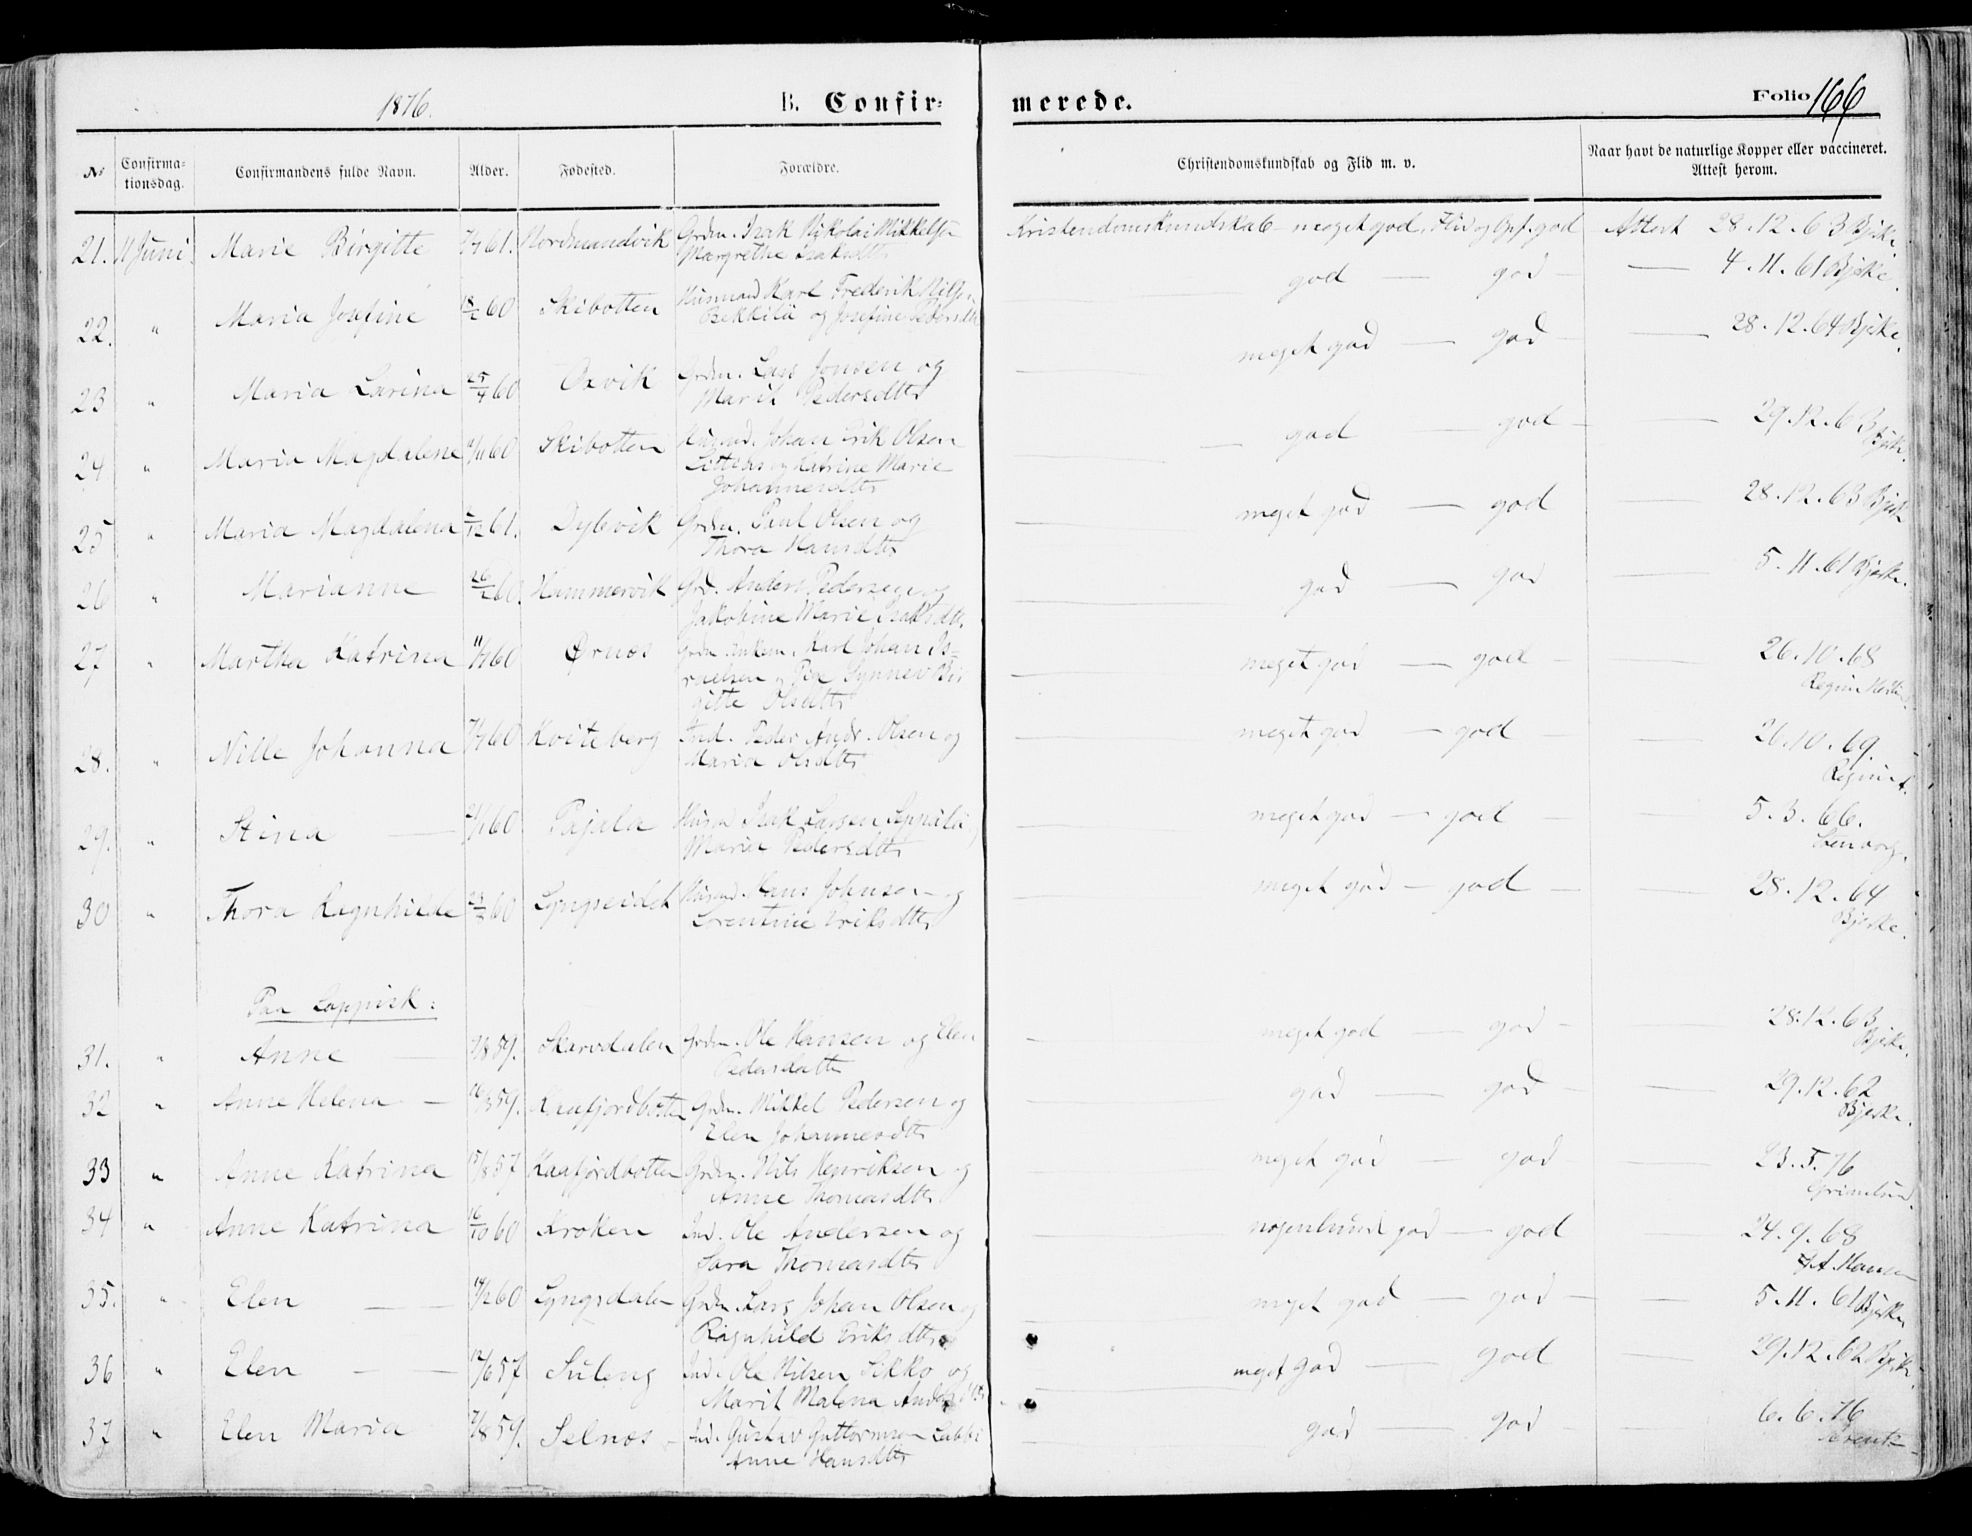 1876.
B. Confir-
merede.
Folio 166
No
Confirma-
tionsdag.
Confirmandens fulde Navn.
Alder.
Fødested.
Forældre.
Christendomskundskab og Flid m. v.
Naar havt de naturlige Kopper eller vaccineret.
Attest herom.
21. 11 Juni. Marie Birgitte 61. Nordmandvik Grdm. Isak Nikolai Mikkelsen
Margrethe Isaksdtr
Kristendomskundskab meget god. Flid og Opf. god Attest 28.12.63 Bjeske
22. " Maria Josefine 18/2 60 Skibotten Husmand Karl Frederik Nilsen
Bekkila og Josefine Pedersdtr
god — god — 4.11.61 Bjeske.
23 " Maria Larina 25/4 60 Oxvik Grdm. Lars Jonsen og
Marit Pedersdtr
meget god — god — 28.12.64 Bjeske.
24 " Maria Magdalene 60 Skibotten Husmd. Johan Erik Olsen
og Katrine Marie
Johannesdtr
god — god — 29.12.63
Bjeske.
25 " Maria Magdalena 61. Dybvik Grdm. Paul Olsen og
Thora Hansdtr
meget god — god — 28.12.63 Bjeske
26 " Marianne 60. Hammervik Grd. Anders Pedersen og
Jakobine Marie Isaksdtr.
god — god — 5.11.61 Bjeske.
27 " Martha Katrina 60 Ørnæs Grdm. Enkem. Karl Johan Is-
raelsen og Synnev Bir
gitte Olsdtr
meget god — god — 26.10.68
28. " Nille Johanna 60 Kviteberg Ind. Peder Andr. Olsen og
Maria Olsdtr
meget god — god — 26.10.69
29. " Stina — 60 Pajala Husmd Isak Larsen
Maria Pedersdtr
meget god — god — 5.3.66.
30 " Thora Ragnhilde 60 Lyngseidet Husmd. Hans Johnsen og
Lorentine Eriksdtr
meget god — god — 28.12.64
Bjeske.
Paa Lappisk:
31. " Anne — 59. Skarvdalen Grdm. Ole Hansen og Elen
Pedersdatter
meget god — god — 28.12.63
Bjeske.
32 " Anne Helena — 59. Kaafjordbotten Grdm. Mikkel Pedersen og
Elen Johannesdtr
god — god — 29.12.62
Bjeske.
33 " Anne Katrina 57 Kaafjordbotten Grdm. Nils Henriksen og
Anne Thomasdtr
meget god — god — 23.5.76
34 " Anne Katrina 16/10 60 Kroken Ind. Ole Andersen og
Sara Thomasdtr
nogenlunde god — god — 24.9.68
Hansen
35. " Elen — 60 Lyngsdalen Grdm. Lars Johan Olsen og
Ragnhild Eriksdtr
meget god — god — 5.11.61 Bjeske
36 " Elen — 57 Suleng Ind. Ole Nilsen Sikko og
Marit Malena Andersdtr
meget god — god — 29.12.62 Bjeske.
37 " Elen Maria 59. Selnæs Ind. Gustav Guttormsen Labbi
Anne Hansdtr
god — god — 6.6.76